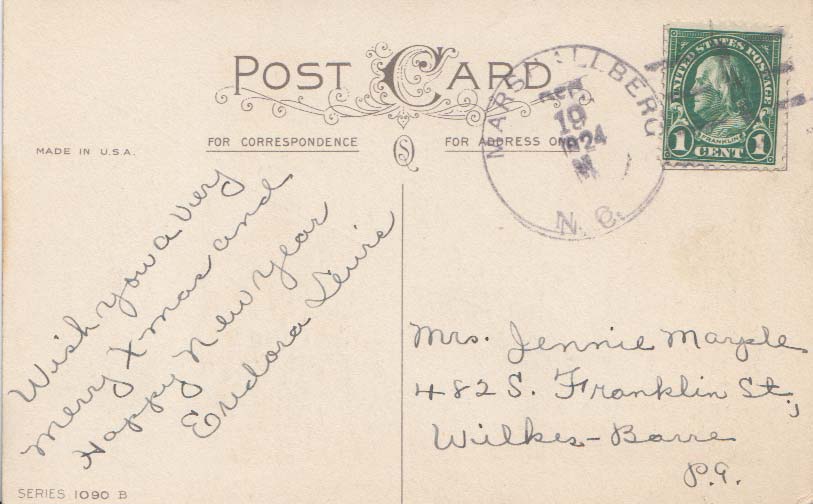 POST CARD
FOR CORRESPONDENCE
FOR ADDRESS ONLY
MADE IN U.S.A.
MARSHALLBERG
19
1924
M
N.C.
UNITED STATES POSTAGE
FRANKLIN
1 CENT 1
Wish you a very
merry Xmas and
Happy New Year
Eudora Lewis
Mrs. Jennie Marple
482 S. Franklin St.,
Wilkes-Barre
P.A.
SERIES 1090 B